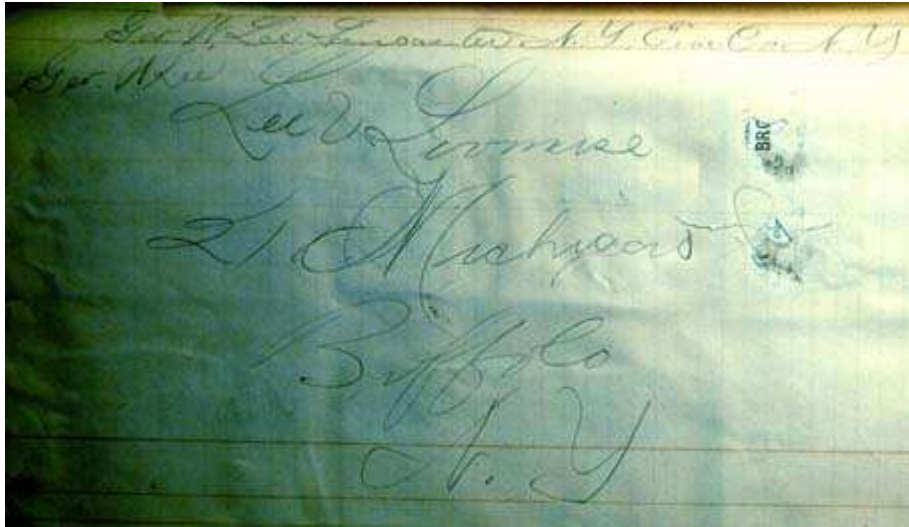 Geo. W. Lee Lancaster. N. Y. Erie Co. N. Y
Geo. W Lee
Lee & Loomise
21 Michigan
Buffalo
N. Y
BRO